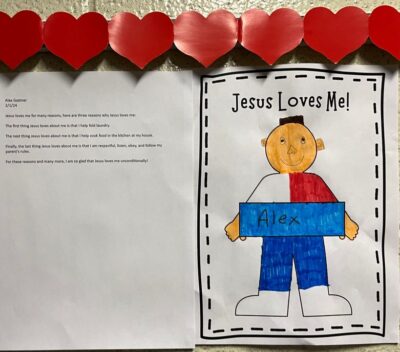 Alex Goetmer
2/1/24
Jesus loves me for many reasons, here are three reasons why Jesus loves me:
The first thing Jesus loves about me is that I help fold laundry.
The next thing Jesus loves about me is that I help cook food in the kitchen at my house.
Finally, the last thing Jesus loves about me is that I am respectful, listen, obey, and follow my
parent's rules.
For these reasons and many more, I am so glad that Jesus loves me unconditionally!
Jesus Loves Me!
Alex